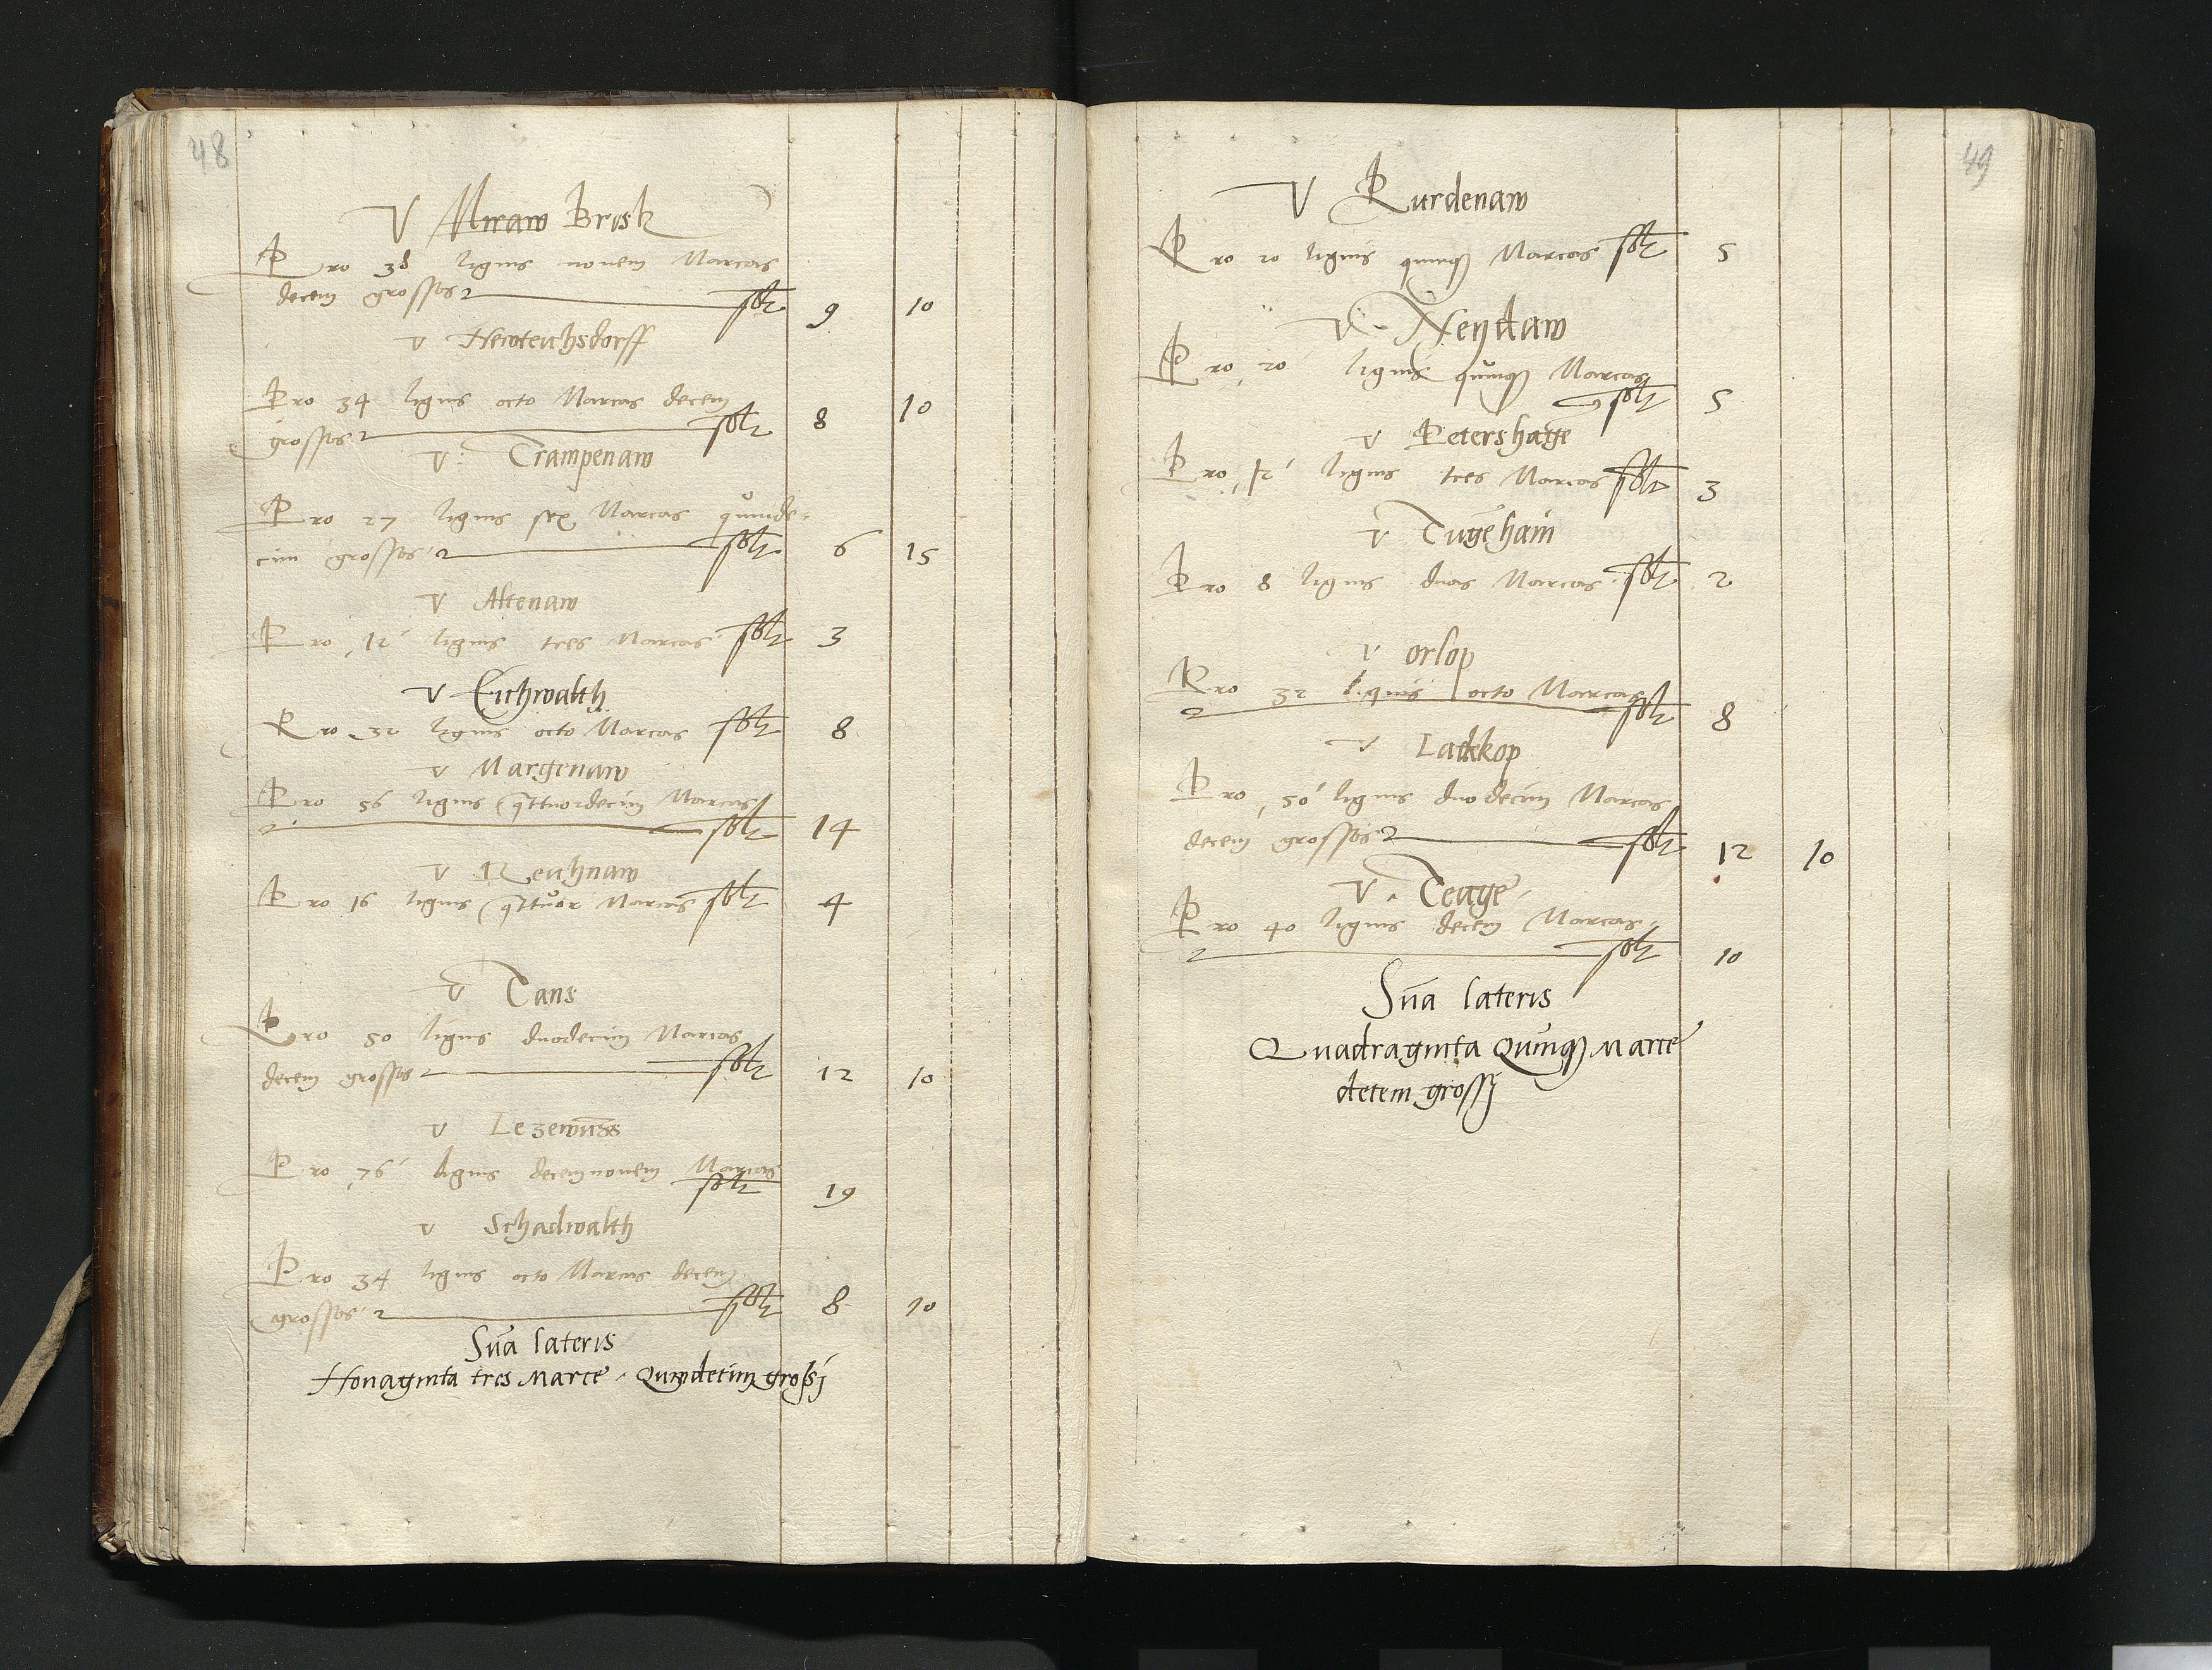 48
V Miraw Brosk
Pro 38 lignis novem Marcas
decem grossos solt 9 10
V Hewteichsdorff
Pro 34 lignis octo Marcas decem
grossos solt 8 10
V Trampenaw
Pro 27 lignis sex Marcas quinde-
cim grossos solt 6 15
V Altenaw
Pro 12 lignis tres Marcas solt 3
V Eichwalth
Pro 32 lignis octo Marcas solt 8
V Margenaw
Pro 56 lignis qttuordecim Marcas
solt 14
V Reichnaw
Pro 16 lignis qttuor Marcas solt 4
V Tans
Pro 50 lignis duodecim Marcas
decem grossos solt 12 10
V Lezewuss
Pro 76 lignis decemnovem Marcas
solt 19
V Schadwalth
Pro 34 lignis octo Marcas decem
grossos solt 8 10
Sua lateris
Nonaginta tres Marce Quindecim grossj
49
V Kurdenaw
Pro 20 lignis quinq Marcas solt 5
V Neydaw
Pro 20 lignis quinq Marcas
solt 5
V Petershage
Pro 12 lignis tres Marcas solt 3
V Tugehain
Pro 8 lignis duas Marcas solt 2
V Orlop
Pro 32 lignis octo Marcas
solt 8
V Ladekop
Pro 50 lignis duodecim Marcas
decem grossos solt 12 10
V Teuge
Pro 40 lignis decem Marcas
solt 10
Sua lateris
Quadraginta Quinq Marce
decem grossj